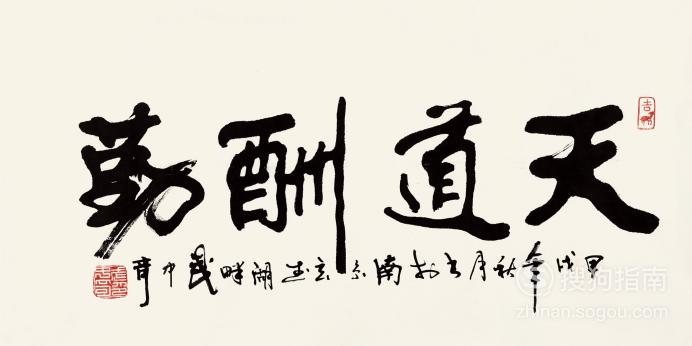 天道酬勤
甲戌年秋月书於南京玄武湖畔武中奇
搜狗指南
zhinan.sogou.com